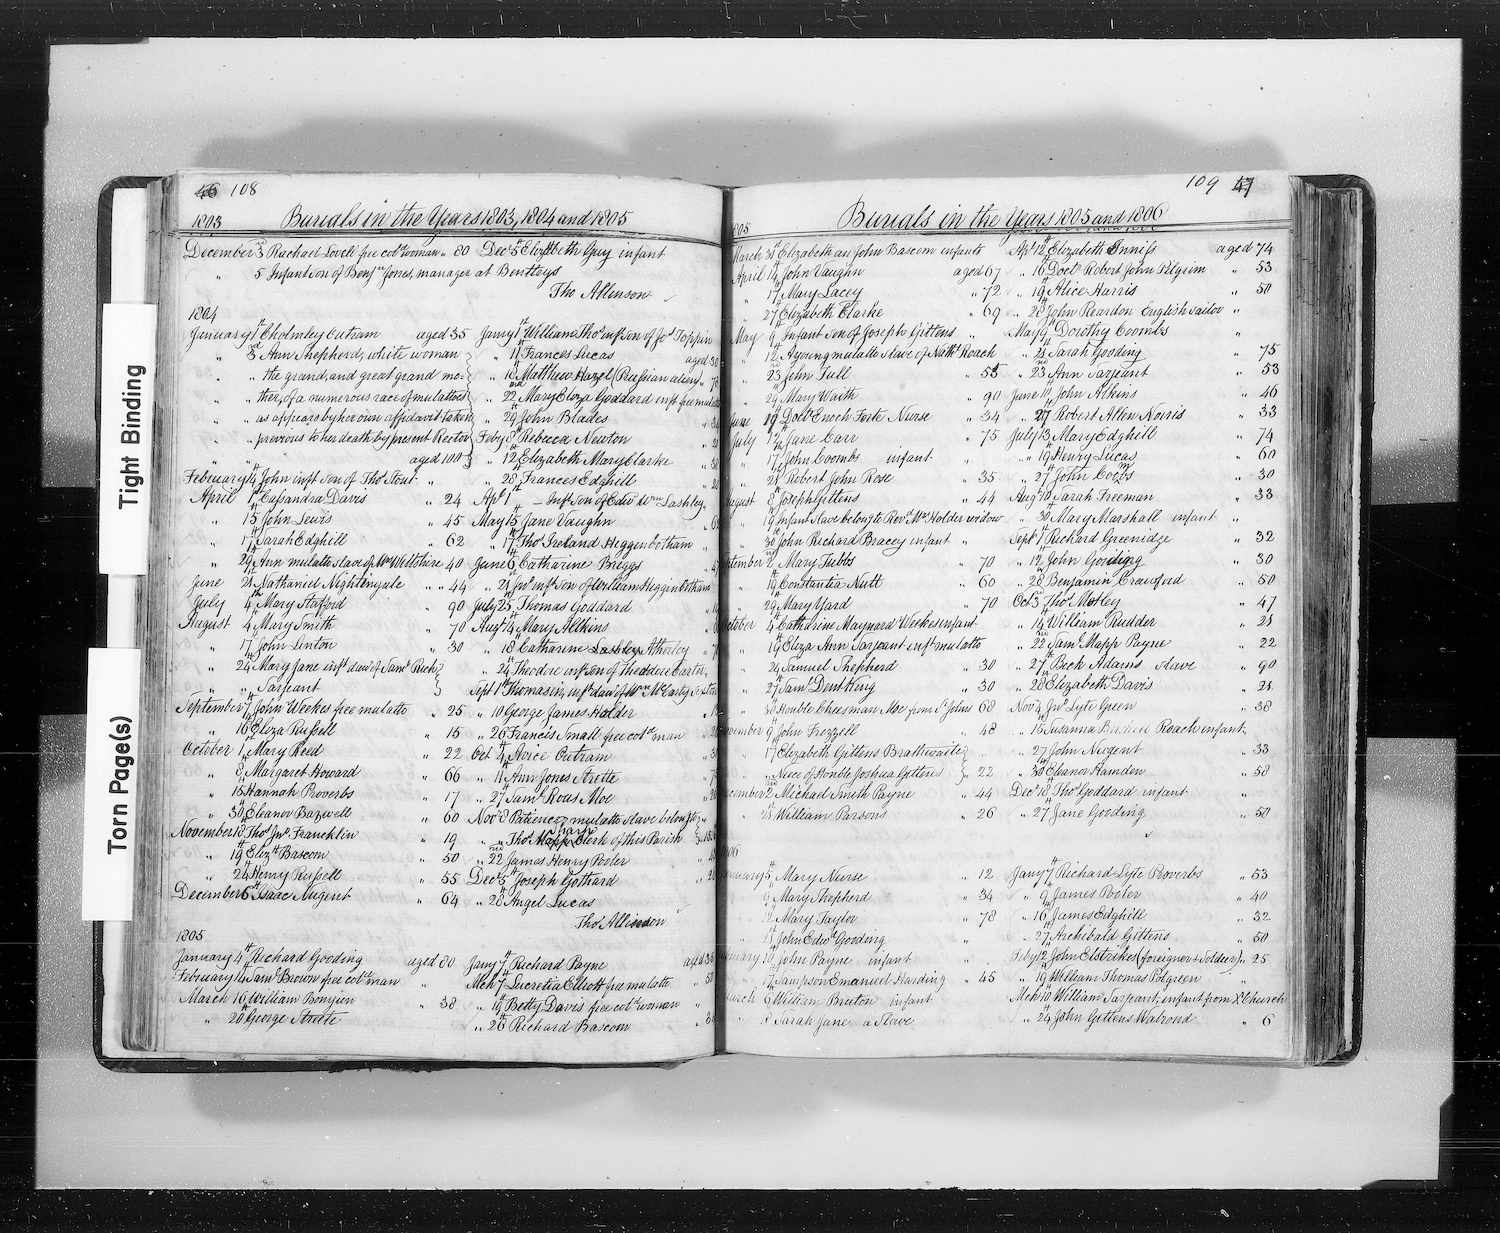 Tight Binding
Torn Page(s)
46 108
1803 Burials in the Years 1803, 1804 and 1805
December 3 Rachael Lovell free cold woman " 80
" 5 Infant son of Benjn Jones, manager at Bentleys
Dec 5th Elizabeth Guy infant
Thos Allinson
1804
January 1st Cholmley Outram aged 35
" 3rd Ann Shepherd, white woman
" " the grand, and great grand mo-
" " ther, of a numerous race of mulattoes
" " as appears by her own affidavit taken
" " previous to her death by present Rector
" " aged 100
February 4 John inft son of Thos Stout "
April 1st Casandra Davis " 24
" 15 John Lewis " 45
" 17 Sarah Edghill " 62
" 29 Ann mulatto slave of Mr Wiltshire 40
June 21 Nathaniel Nightengale " 44
July 4th Mary Stafford " 90
August 4 Mary Smith " 70
" 17 John Linton " 30
" 24 Mary Jane inft daur of Saml Rich
" " Sargeant
September 7 John Weekes free mulatto " 25
" 16 Eliza Russell " 15
October 1 Mary Reed " 22
" 8 Margaret Howard " 66
" 15 Hannah Proverbs " 17
" 30 Eleanor Bazwell " 60
November 18 Thos Jno Francklin " 19
" 19 Elizth Bascom " 50
" 24 Henry Russell " 55
December 6th Isaac Nugent " 64
Jany 1st William Thos inft son of Jos Toppin
" 11 Frances Lucas aged 30
" 18 Matthew Hazel (Russian alien)
" 22 Mary Eliza Goddard inft free mulatto
" 29 John Blades
Feby 8th Rebecca Newton
" 12 Elizabeth Mary Clarke
" 28 Frances Edghill
Apl 1st Inft Son of Edwd Lashley
May 15 Jane Vaughn
" 17 Thos Ireland Higginbotham
June 6 Catharine Briggs
" 21 Jno inft son of William Higginbotham
July 25 Thomas Goddard
Augt 4 Mary Allkins
" 18 Catharine Lashley Atherley
" 24 Theodre inft son of Theodore Carter
Sept 1st Thomasin inft daur of Wm McCarty
" 10 George James Holder
" 26 Francis Small free cold man
Oct 4 Avice Outram
" 11 Ann Jones Strette
" 27 Saml Rous Moe
Novr 8 Patience, mulatto slave belongg
" " Thos Sharp Clerk of this Parish
" 22 James Henry Pooler
Decr 5th Joseph Gothard
" 28 Angel Lucas
Thos Allinson
1805
January 4th Richard Gooding aged 80
February 14 Saml Brown free cold man "
March 16 William Bonyun " 38
" 20 George Strette
Jany 7 Richard Payne
Mch 7 Lucretia Elliott free mulatto
" 19 Betty Davis free cold woman
" 26 Richard Bascom
109 47
Burials in the Years 1805 and 1806
March 31 Elizabeth an John Bascom infants
April 14 John Vaughn aged 67
" 17 Mary Lacey " 72
" 27 Elizabeth Clarke " 69
May 9 Infant son of Joseph Gittens "
" 12 A young mulatto slave of Nathl Roach
" 23 John Tull " 55
" 24 Mary Waith " 90
June 19 Docr Enoch Forte Nurse " 34
July 12 Jane Carr " 75
" 17 John Coombs infant "
" 21 Robert John Rose " 35
August 8 Joseph Gittens " 44
" 19 Infant slave belong to Revd Mrs Holder widow
" 30 John Richard Bracey infant "
September 2 Mary Tubbs " 70
" 19 Constantia Nutt " 60
" 29 Mary Yard " 70
October 4 Catharine Maynard Weekes infant
" 19 Eliza Ann Sargeant inft mulatto
" 24 Samuel Shepherd " 30
" 27 Saml Dent King " 30
" 30 Honble Cheesman Moe from St Johns 68
November 9 John Frezzell " 48
" 17 Elizabeth Gittens Brathwaite
" " Niece of Honble Joshua Gittens 22
December 2 Michael Smith Payne " 44
" 18 William Parsons " 26
1806
January 5 Mary Nurse " 12
" 6 Mary Shepherd " 34
" 12 Mary Taylor " 78
" 18 John Edwd Gooding "
February 10 John Payne infant "
" 17 Sampson Emanuel Harding " 45
March 6 William Bruton infant
" 8 Sarah Jane a Slave
Apl 12 Elizabeth Inniss aged 74
" 16 Doctr Robert John Pilgrim " 53
" 19 Alice Harris " 50
" 28 John Reardon English sailor "
May 9 Dorothy Coombs "
" 21 Sarah Gooding " 75
" 23 Ann Sargeant " 53
June 10 John Atkins " 46
" 27 Robert Allen Norris " 33
July 13 Mary Edghill " 74
" 19 Henry Lucas " 60
" 27 John Coombs " 30
Aug 10 Sarah Freeman " 33
" 30 Mary Marshall infant "
Septr 1 Richard Greenidge " 32
" 12 John Gooding " 30
" 28 Benjamin Crawford " 50
Oct 3 Thos Motley " 47
" 14 William Rudder " 21
" 22 Saml Mapp Payne " 22
" 27 Beck Adams slave " 90
" 28 Elizabeth Davis " 21
Nov 4 Jno Lyte Green " 38
" 15 Susanna Roach infant
" 27 John Nugent " 33
" 30 Eleanor Hamden " 58
Decr 18 Thos Goddard infant "
" 27 Jane Gooding " 50
Jany 7 Richard Lyte Proverbs " 53
" 9 James Pooler " 40
" 16 James Edghill " 32
" 27 Archibald Gittens " 50
Feby 12 John Elstrikes (foreigner & Soldier) " 25
" 19 William Thomas Pilgreen "
Mch 10 William Sargeant, infant from Xt Church
" 24 John Gittens Walrond " 6